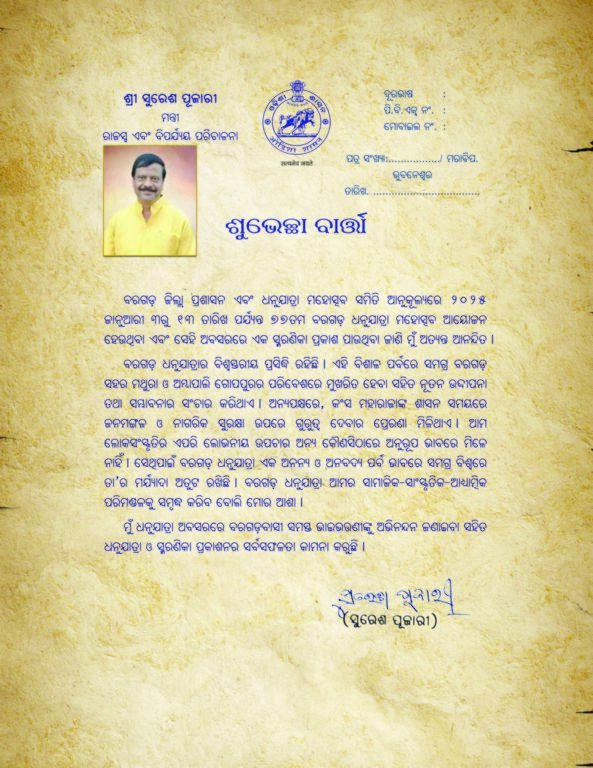 ଶ୍ରୀ ସୁରେଶ ପୂଜାରୀ
ମନ୍ତ୍ରୀ
ରାଜସ୍ୱ ଏବଂ ବିପର୍ଯ୍ୟୟ ପରିଚାଳନା
ଓଡ଼ିଶା ଶାସନ
सत्यमेव जयते
ଦୂରଭାଷ :
ପି.ବି.ଏକ୍ସ ନଂ. :
ମୋବାଇଲ ନଂ. :
ପତ୍ର ସଂଖ୍ୟା:................./ ମରାବିପ.
ଭୁବନେଶ୍ୱର
ତାରିଖ. ...................................
ଶୁଭେଚ୍ଛା ବାର୍ତ୍ତା
ବରଗଡ଼ ଜିଲ୍ଲା ପ୍ରଶାସନ ଏବଂ ଧନୁଯାତ୍ରା ମହୋତ୍ସବ ସମିତି ଆନୁକୂଲ୍ୟରେ ୨୦୨୫
ଜାନୁଆରୀ ୩ରୁ ୧୩ ତାରିଖ ପର୍ଯ୍ୟନ୍ତ ୭୭ତମ ବରଗଡ଼ ଧନୁଯାତ୍ରା ମହୋତ୍ସବ ଆୟୋଜନ
ହେଉଥିବା ଏବଂ ସେହି ଅବସରରେ ଏକ ସ୍ମରଣିକା ପ୍ରକାଶ ପାଉଥିବା ଜାଣି ମୁଁ ଅତ୍ୟନ୍ତ ଆନନ୍ଦିତ ।
ବରଗଡ଼ ଧନୁଯାତ୍ରାର ବିଶ୍ୱସ୍ତରୀୟ ପ୍ରସିଦ୍ଧି ରହିଛି । ଏହି ବିଶାଳ ପର୍ବରେ ସମଗ୍ର ବରଗଡ଼
ସହର ମଥୁରା ଓ ଅମ୍ବାପାଲି ଗୋପପୁରର ପରିବେଶରେ ମୁଖରିତ ହେବା ସହିତ ନୂତନ ଉଦ୍ଦୀପନା
ତଥା ସମ୍ଭାବନାର ସଂଚାର କରିଥାଏ । ଅନ୍ୟପକ୍ଷରେ, କଂସ ମହାରାଜାଙ୍କ ଶାସନ ସମୟରେ
ଜନମଙ୍ଗଳ ଓ ନାଗରିକ ସୁରକ୍ଷା ଉପରେ ଗୁରୁତ୍ୱ ଦେବାର ପ୍ରେରଣା ମିଳିଥାଏ । ଆମ
ଲୋକସଂସ୍କୃତିର ଏପରି ଲୋଭନୀୟ ଉପଚାର ଅନ୍ୟ କୌଣସିଠାରେ ଅନୁରୂପ ଭାବରେ ମିଳେ
ନାହିଁ । ସେଥିପାଇଁ ବରଗଡ଼ ଧନୁଯାତ୍ରା ଏକ ଅନନ୍ୟ ଓ ଅନବଦ୍ୟ ପର୍ବ ଭାବରେ ସମଗ୍ର ବିଶ୍ୱରେ
ତା'ର ମର୍ଯ୍ୟାଦା ଅତୁଟ ରଖିଛି । ବରଗଡ଼ ଧନୁଯାତ୍ରା ଆମର ସାମାଜିକ-ସାଂସ୍କୃତିକ-ଆଧ୍ୟାତ୍ମିକ
ପରିମଣ୍ଡଳକୁ ସମୃଦ୍ଧ କରିବ ବୋଲି ମୋର ଆଶା ।
ମୁଁ ଧନୁଯାତ୍ରା ଅବସରରେ ବରଗଡ଼ବାସୀ ସମସ୍ତ ଭାଇଭଉଣୀଙ୍କୁ ଅଭିନନ୍ଦନ ଜଣାଇବା ସହିତ
ଧନୁଯାତ୍ରା ଓ ସ୍ମରଣିକା ପ୍ରକାଶନର ସର୍ବସଫଳତା କାମନା କରୁଛି ।
ସୁରେଶ ପୂଜାରୀ
(ସୁରେଶ ପୂଜାରୀ)